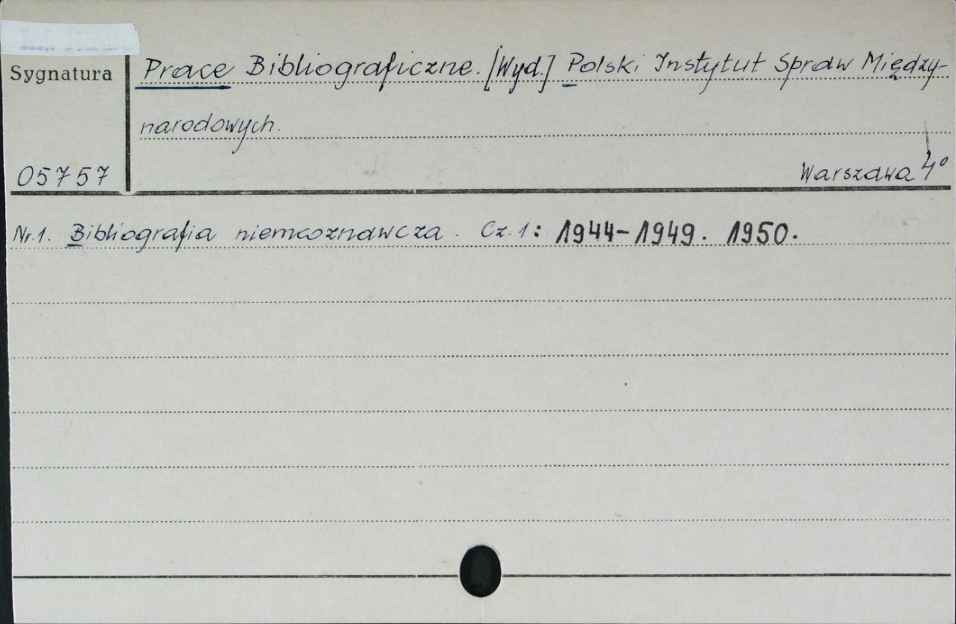 Sygnatura
Prace Bibliograficzne. [Wyd.] Polski Instytut Spraw Między-
narodowych.
05757
Warszawa 4°
Nr.1. Bibliografia niemcoznawcza. Cz.1: 1944-1949. 1950.